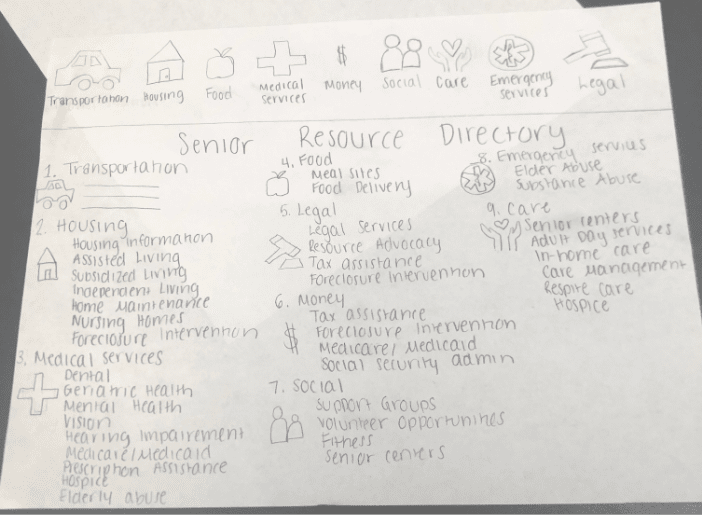 Transportation Housing Food Medical Services Money Social Care Emergency Services Legal
Senior Resource Directory
1. Transportation
2. Housing
Housing Information
Assisted Living
Subsidized Living
Independent Living
Home Maintenance
Nursing Homes
Foreclosure Intervention
3. Medical Services
Dental
Geriatric Health
Mental Health
Vision
Hearing Impairement
Medicare/Medicaid
Prescription Assistance
Hospice
Elderly abuse
4. Food
Meal Sites
Food Delivery
5. Legal
Legal Services
Resource Advocacy
Tax assistance
Foreclosure Intervention
6. Money
Tax assistance
Foreclosure Intervention
Medicare/Medicaid
Social security admin
$
7. Social
Support Groups
Volunteer Opportunines
Fitness
Senior centers
8. Emergency servius
Elder Abuse
Substance Abuse
9. Care
Senior centers
Adult Day services
In-home care
Care Management
Respite care
Hospice